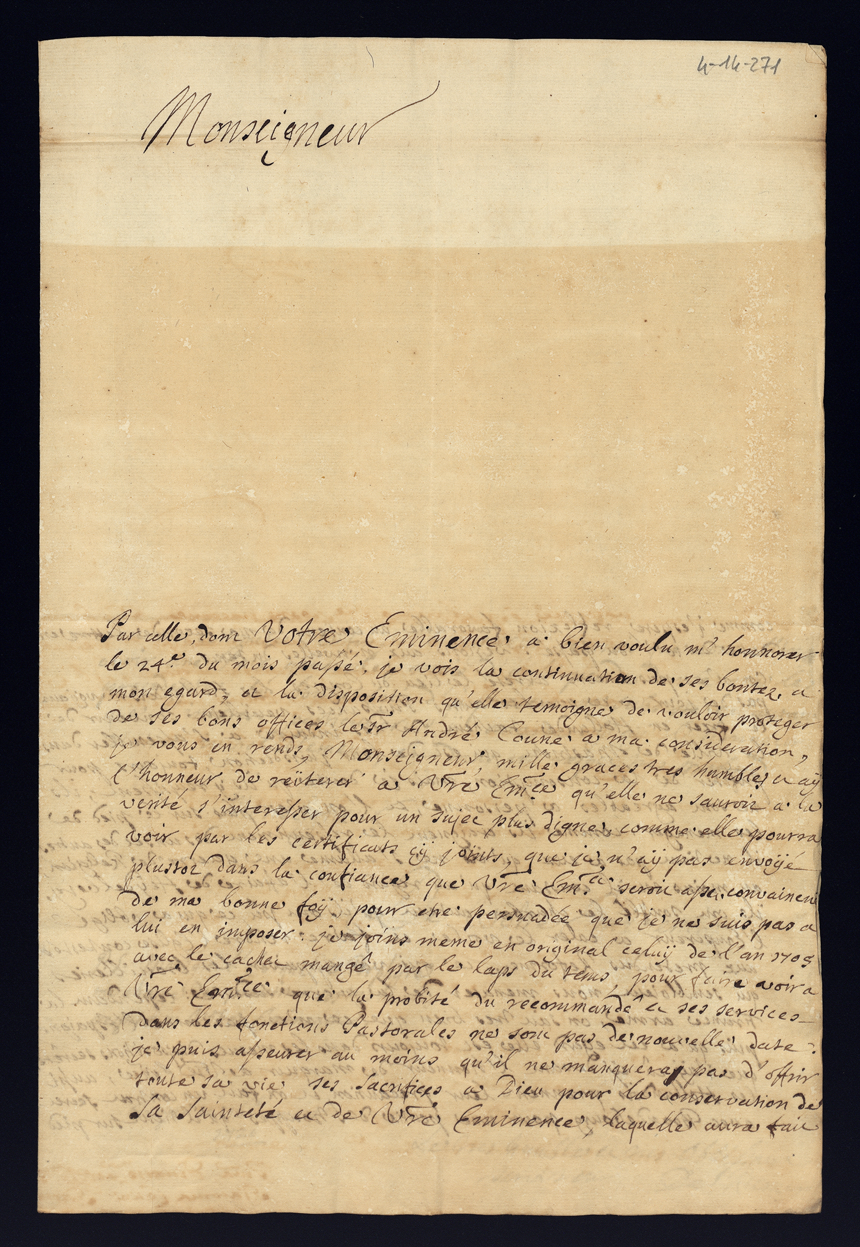 4-14-271
Monseigneur
Par celle, dont Votre Eminence a bien voulu m'honnorer
le 24e du mois passé je vois la continuation de ses bontez a
mon egard, et la disposition qu'elle temoigne de vouloir proteger
de ses bons offices le Sr André Coune a ma consideration,
je vous en rends, Monseigneur, mille graces tres humbles et aÿ
l'honneur de reïterer a Vre Emce qu'elle ne sauroit a la
verité s'interesser pour un sujet plus digne, comme elle pourra
voir par les certificats cÿ joints, que je n'aÿ pas envoÿé
plustot dans la confiance que Vre Emce seroit assé convaincu
de ma bonne foÿ, pour etre persuadée que je ne suis pas a
lui en imposer. je joins meme en original celuÿ de l'an 1709
avec le cachet mangé par le laps du tems, pour faire voir a
Vre Emce que la probité du recommandé et ses services
dans les fonctions Pastorales ne sont pas de nouvelle date:
je puis asseurer au moins qu'il ne manquera pas d'offrir
toute sa vie ses sacrifices a Dieu pour la conservation de
Sa Sainteté et de Vre Eminence, laquelle aura fait